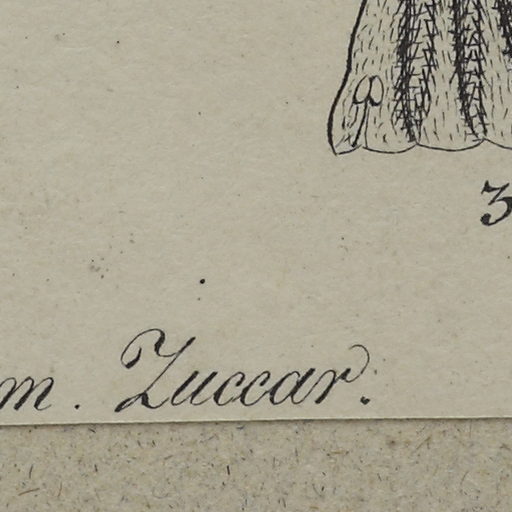 3
m. Zuccar.